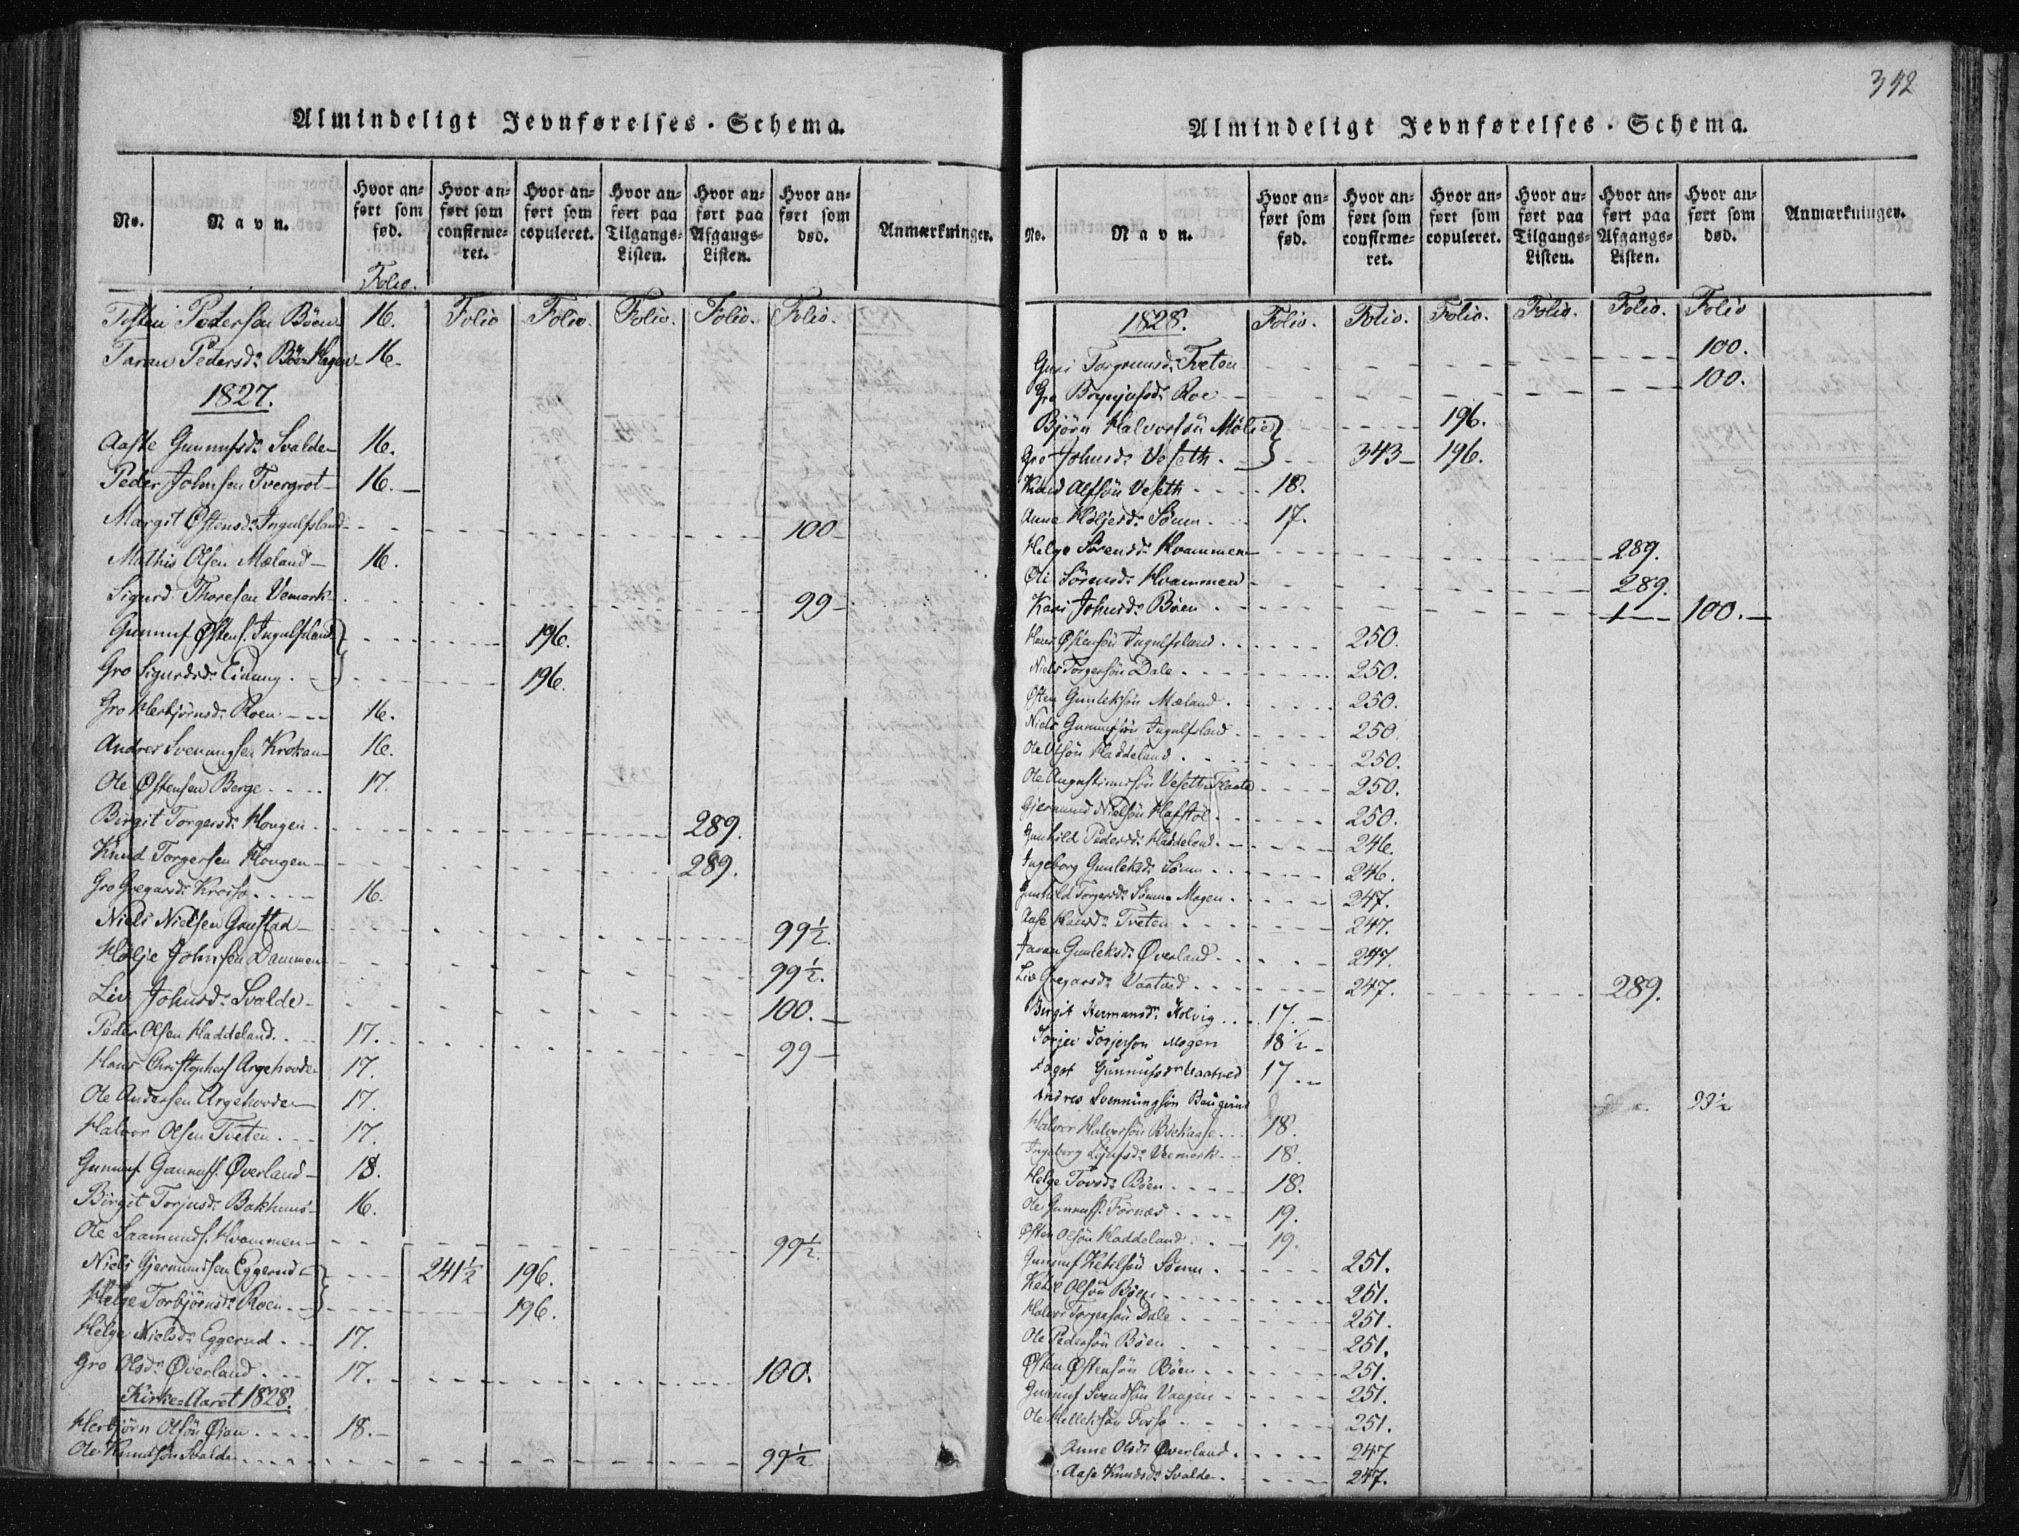 Almindeligt Jevnførelses-Schema.
No. Navn. Hvor anført som fød. Hvor anført som confirmeret. Hvor anført som copuleret. Hvor anført paa Tilgangs-Listen. Hvor anført paa Afgangs-Listen. Hvor anført som død. Anmærkninger.
Folio.
Pedersen Bøen 16. Folio Folio. Folio. Folio. Folio.
Taran Pedersd: Bøen Hagen 16.
1827.
Aaste Gunnufsd: Svalde 16.
Peder Johnsen Tvergrot 16.
Margit Østensd: Ingulfsland 100
Mathis Olsen Mæland 16.
Sigurd Thoresen Vemork 99
Gunnuf Østens. Ingulfsland 196.
Gro Sigurdsd: 196.
Gro Herbjørnsd: Roen 16.
Andres Svenungsen Krokan 16.
Ole Østensen Berge 17.
Birgit Torgersd: Hougen 289.
Knud Torgersen Hougen 289.
Gro Gregarsd: 16.
Niels Nielsen 99½.
Hølje Johnsen Dammen 99½.
Liv Johnsd: Svalde 100.
Peder Olsen Haddeland 17. 99
Hans Christophers. Argehovde 17.
Ole Andersen Argehovde 17.
Halvor Olsen Tveten 17.
Gunnuf Gunnufs. Øverland 18.
Birgit Torjusd: Bakhuus 16.
Ole Saamunds. Hvammen 99½.
Niels Gjermundsen Eggerud 241½ 196.
Helge Torbjørnsd: Roen 196.
Helge Nielsd: Eggerud 17.
Gro Olsd: Øverland 17. 100.
Kirke-Aaret 1828.
Herbjørn Olsøn Øian 18.
Ole Knudsøn Svalde 99½
342
Almindeligt Jevnførelses-Schema.
No. Navn. Hvor anført som fød. Hvor anført som confirmeret. Hvor anført som copuleret. Hvor anført paa Tilgangs-Listen. Hvor anført paa Afgangs-Listen. Hvor anført som død. Anmærkninger.
1828. Folio. Folio. Folio. Folio. Folio. Folio
Guri Torgrimsd: Tveten 100.
Gro Roe 100.
Bjørn Halvorsøn Mølie 196.
Gro Johnsd: Veseth 343 196.
Knud Alfsøn Veseth 18.
Anne Høljesd: Sønm 17.
Helge Sørensd: Hvammen 289.
Oli Sørensd: Hvammen 289.
Kari Johnsd: Bøen 100.
Hans Østensøn Ingulfsland 250.
Niels Torgersøn Dale 250.
Østen Gunleksøn Mæland 250.
Niels Gunnufsøn Ingulfsland 250.
Ole Olsøn Haddeland 250.
Ole Augustinusøn Veseth Flaata 250.
Gjermund Nielsøn Hafstøl 250.
Gunhild Pedersd: Haddeland 246.
Ingeborg Gunleksd: Sønm 246.
Gunhild Torgersd: Mogen 247.
Aase Hansd: Tveten 247.
Taran Gunleksd: Øverland 247.
Liv Gregarsd: Vaatved 247. 289.
Birgit Hermansd: Kolvig 17.
Torjer Torjerson Mogen 18½
Aagot Gunnufsd: Vaatved 17.
Andres Svenningsøn Baugrud 99½
Halvor Halvorsøn 18.
Ingeberg Vermork 18.
Helge Tovsd: Bøen 18.
Ole Gunnufs. Førnæs 19.
Østen Olsøn Haddeland 19.
Gunnuf Ketilsøn Sønm 251.
Ketil Olsøn Bøen 251.
Halvor Torgersøn Dale 251.
Ole Pedersøn Bøen 251.
Østen Østensøn Bøen 251.
Gunnuf Svendsøn Vaagen 251.
Ole Helleksøn Fosso 251.
Anne Olsd: Øverland 247
Aase Knudsd: Svalde 247.